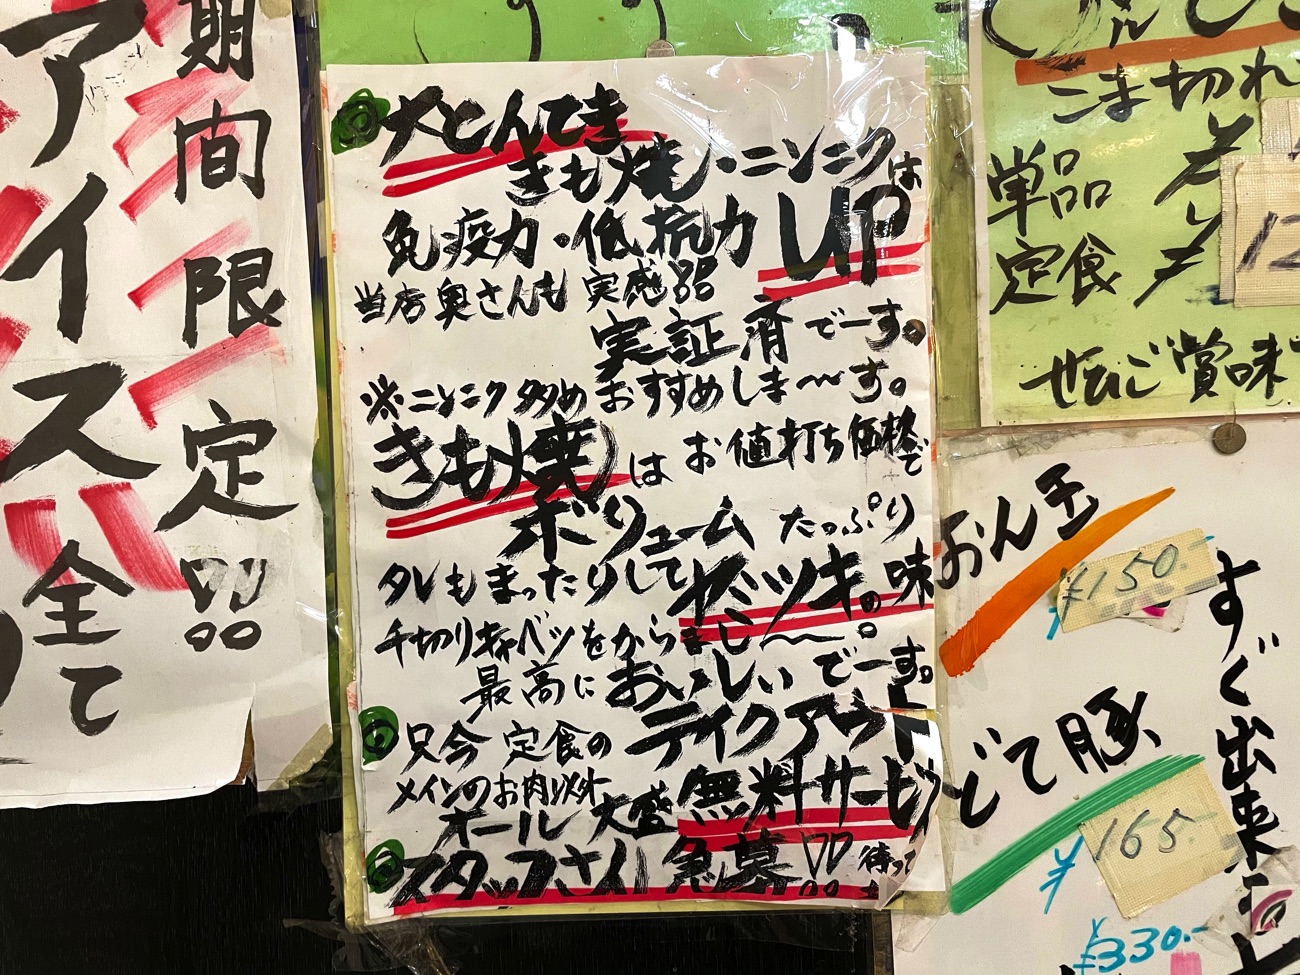 期間限定!!
アイス
全て
大とんてき
きも焼・ニンニクは
免疫力・低抗力UP
当店奥さんも実感!!
実証済でーす。
※ニンニク多めおすすめしま〜す。
きも焼はお値打ち価格で
ボリュームたっぷり
タレもまったりしてヤミツキの味
千切りキャベツをからまし〜。
最高においしいでーす。
只今定食のテイクアウト
メインのお肉以外
オール大盛無料サービス
スタッフさん急募!! 待って
こま切れ
単品
定食
ぜひご賞味
おん玉
¥150-
どて豚
¥165-
¥330.-
すぐ出来上